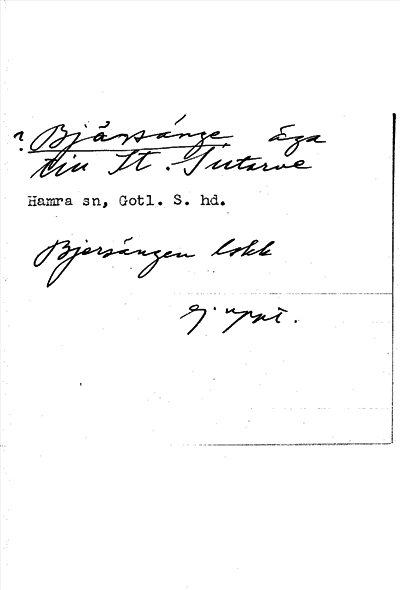 ? Bjärsänge äga
tiu St. Gutarve
Hamra sn, Gotl. S. hd.
Bjersängen lokk
ej uppt.